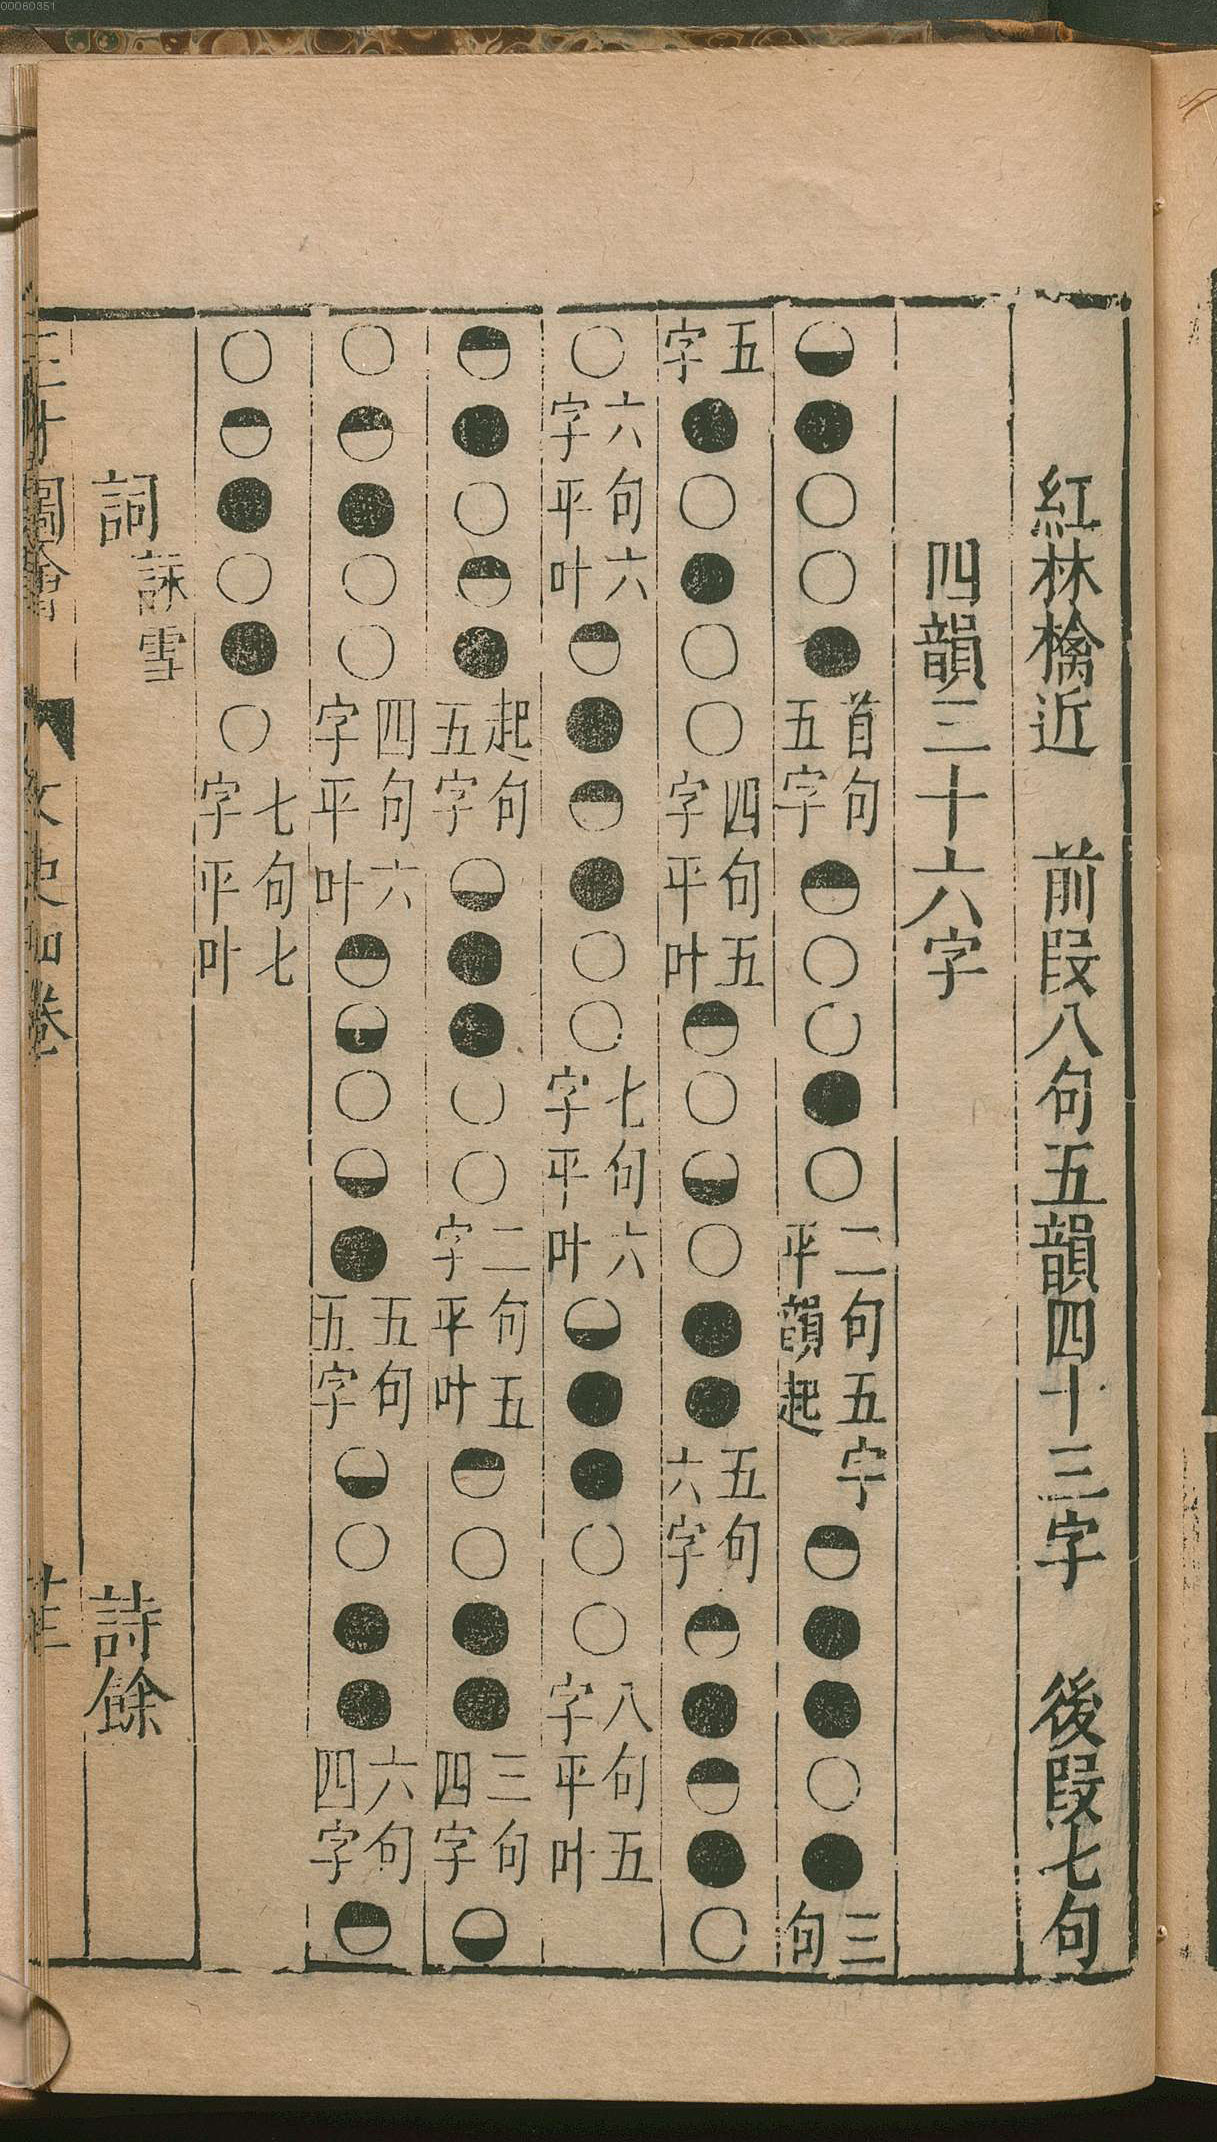 00060351
紅林檎近　前段八句五韻四十三字　後段七句
四韻三十六字
◒●○○●首句五字◓○○●○二句五字平韻起◓●●○●三句
五字●○●○○四句五字平叶◓○◒○●●五句六字◓●◓●○
○六句六字平叶◓●◓●○○七句六字平叶◒●●○○八句五字平叶
◓●○◓●起句五字◒●●○○二句五字平叶◓○●●三句四字◒
○◓●○○四句六字平叶◓◒○◒●五句五字◒○●●六句四字◓
○◓●○●○七句七字平叶
詞　詠雪　詩餘
三才圖會　文史四卷